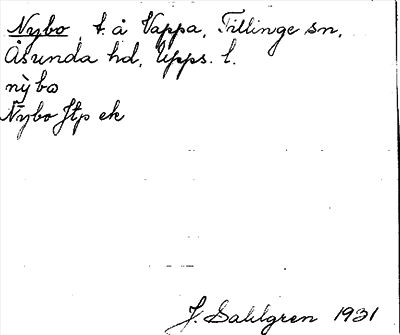 Nybo, t. å Vappa, Tillinge sn,
Åsunda hd, Upps. l.
nỳbo
Nybo Jtp ek
J. Sahlgren 1931